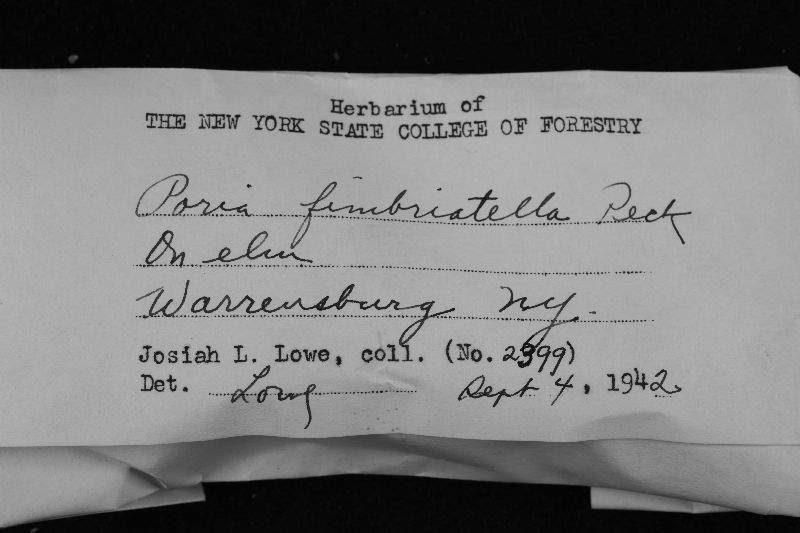 Herbarium of
THE NEW YORK STATE COLLEGE OF FORESTRY
Poria fimbriatella Peck
On elm
Warrensburg NY.
Josiah L. Lowe, coll. (No. 2399)
Det. Lowe Sept 4, 1942.